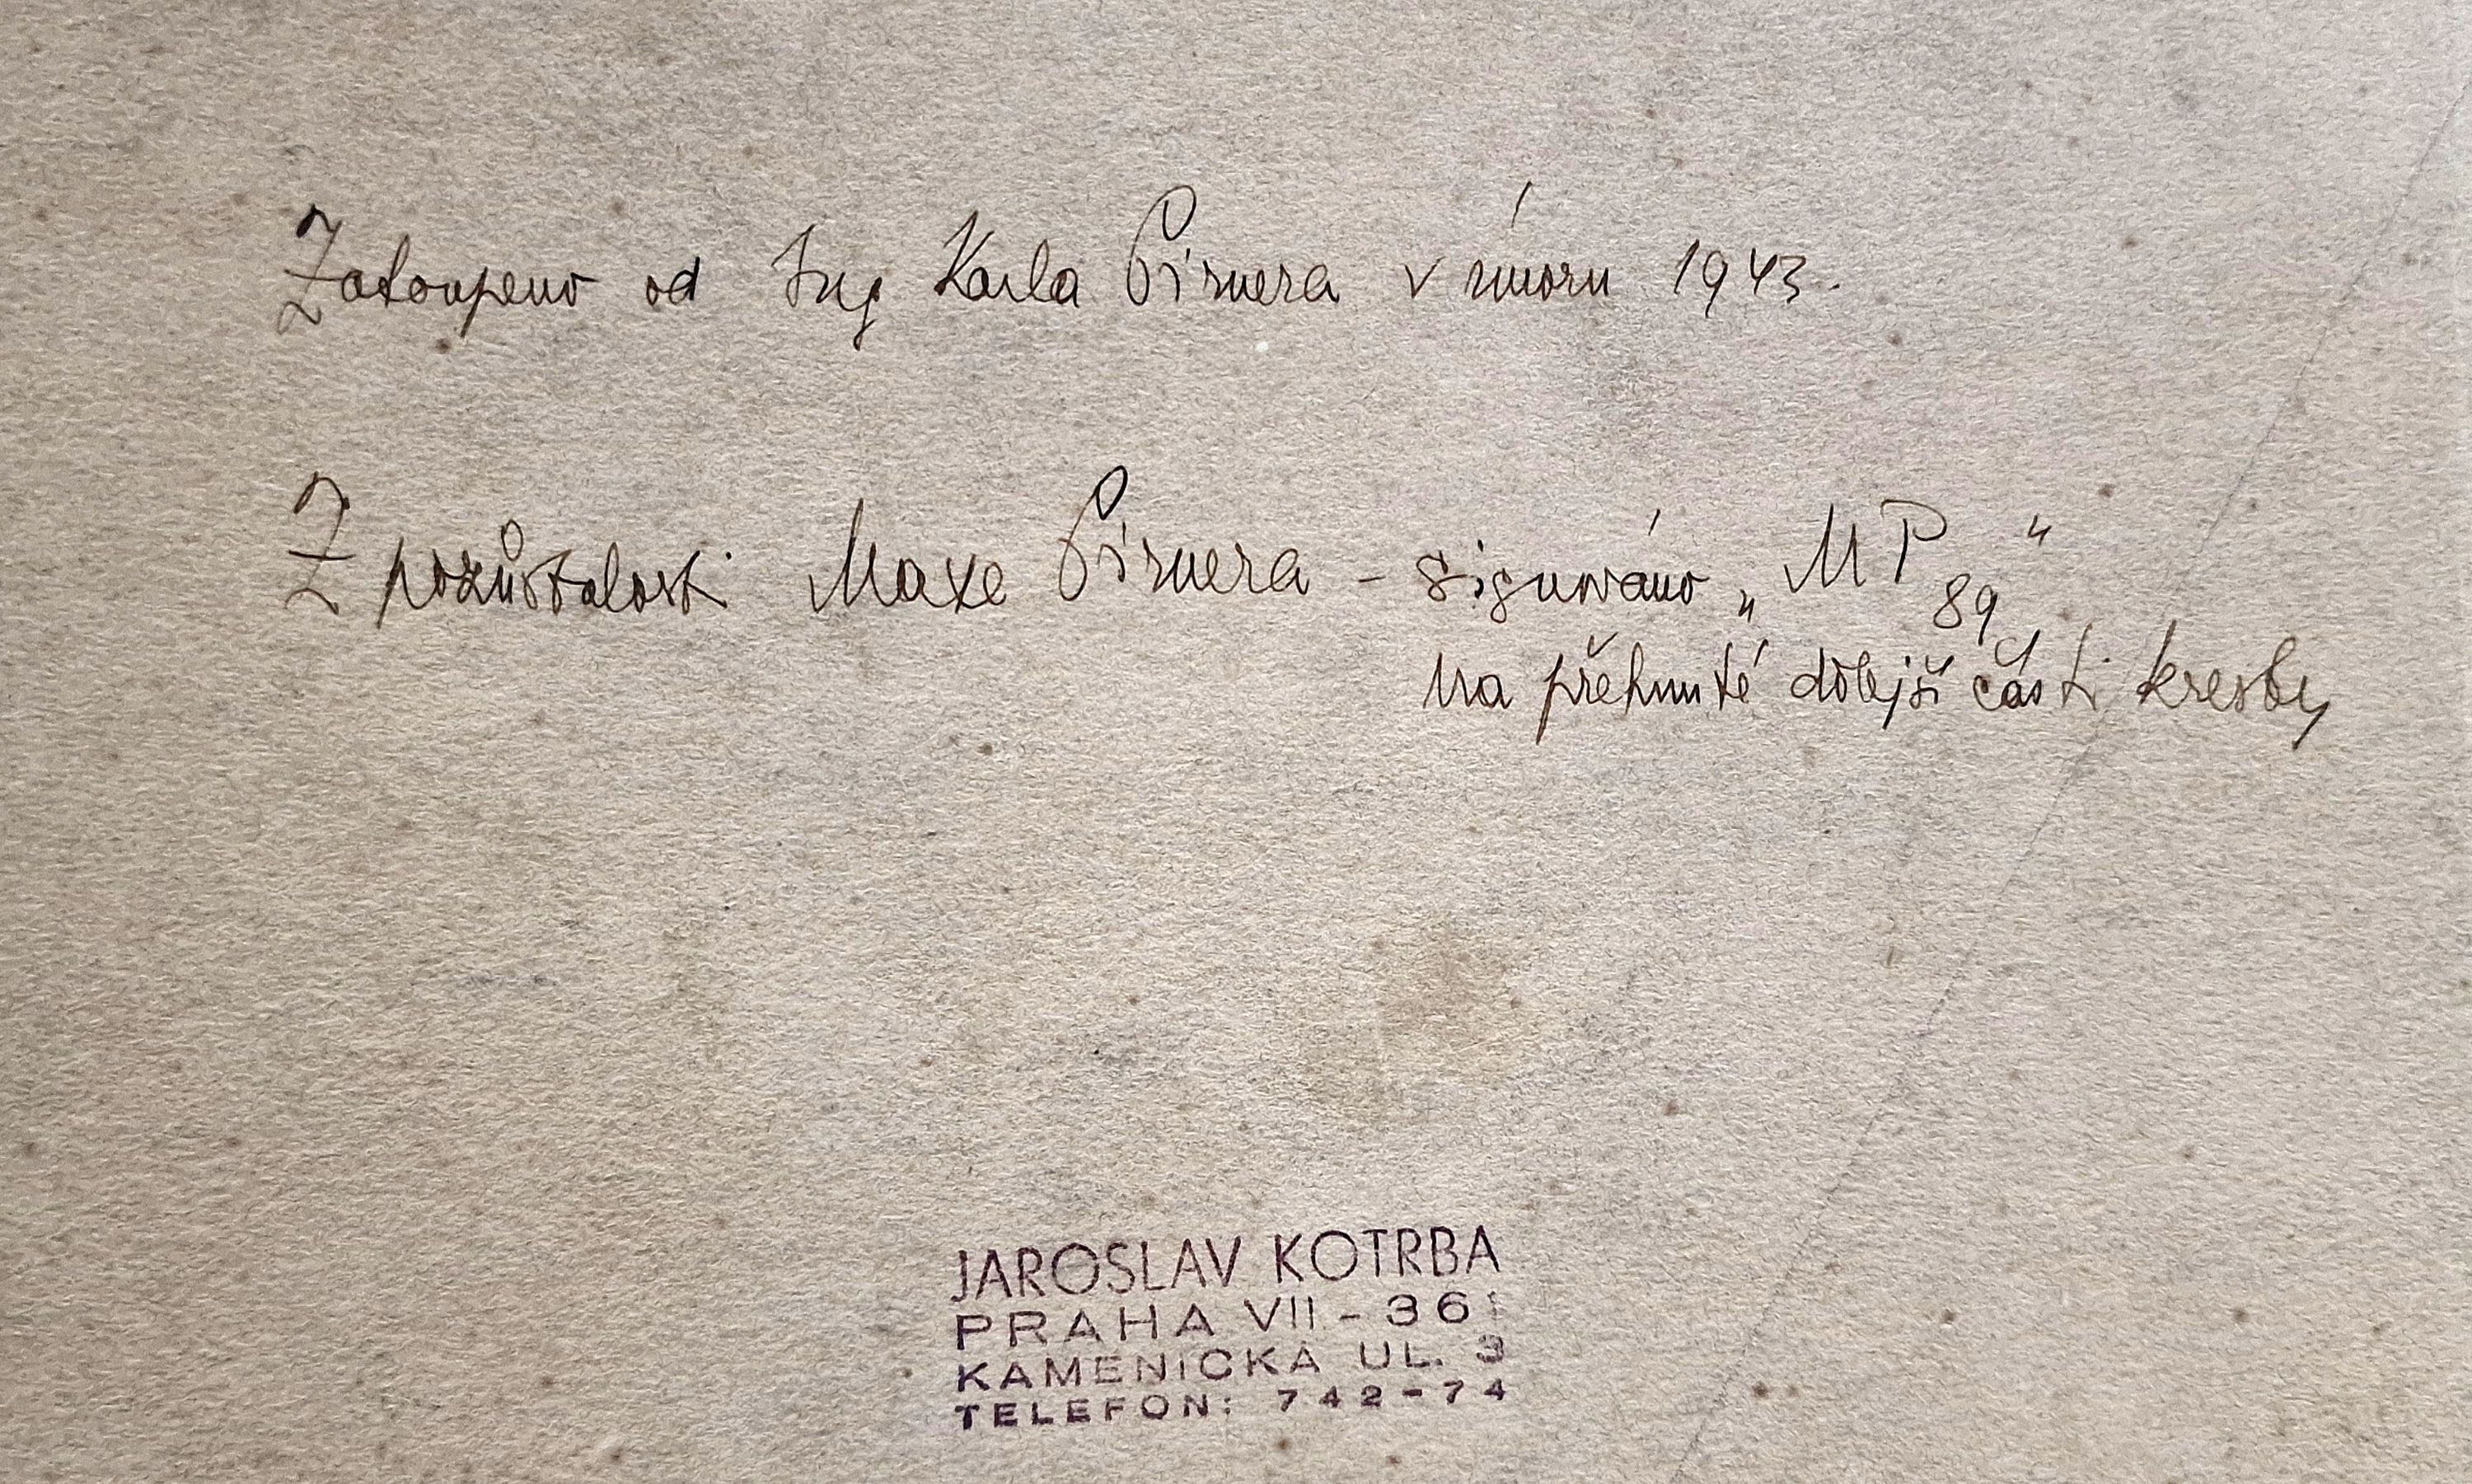 Zakoupeno od Ing Karla Pirnera v únoru 1943.
Z pozůstalosti Maxe Pirnera - signováno „MP 89“
na přehnuté dolejší části kresby
JAROSLAV KOTRBA
PRAHA VII - 361
KAMENICKÁ UL. 3
TELEFON: 742-74